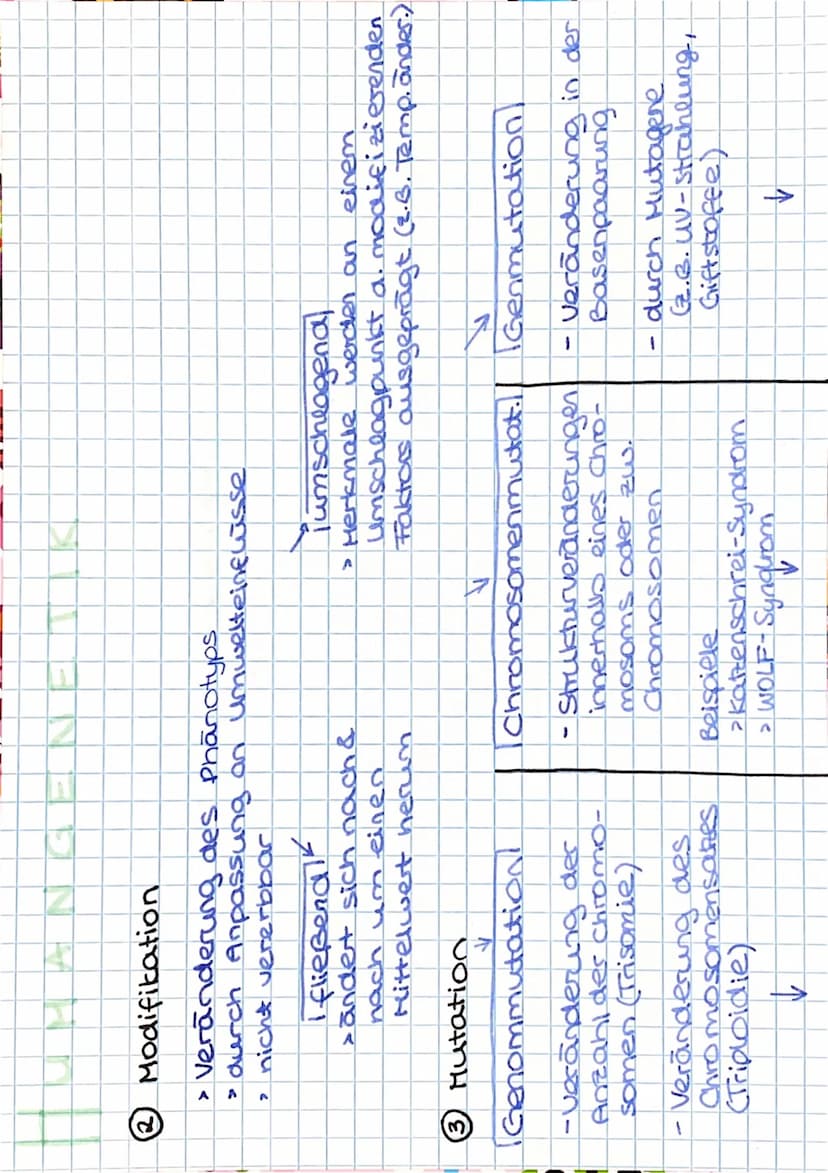 HUMANGENETIK
② Modifikation
> Veränderung des Phänotyps
> durch Anpassung an Umwelteinflüsse
> nicht vererbbar
fließend
> ändert sich nach &
nach um einen
Mittelwert herum
umschlagend
> Merkmale werden an einem
Umschlagpunkt d. modifizierenden
Faktors ausgeprägt (z.B. Temp.änder.)
③ Mutation
Genommutation
- Veränderung der
Anzahl der Chromo-
somen (Trisomie)
- Veränderung des
Chromosomensatzes
(Triploidie)
↓
Chromosomenmutat.
- Strukturveränderungen
innerhalb eines Chro-
mosoms oder zw.
Chromosomen
Beispiele
> Katzenschrei-Syndrom
> WOLF-Syndrom
↓
Genmutation
- Veränderung in der
Basenpaarung
- durch Mutagene
(z.B. UV-Strahlung,
Giftstoffe)
↓